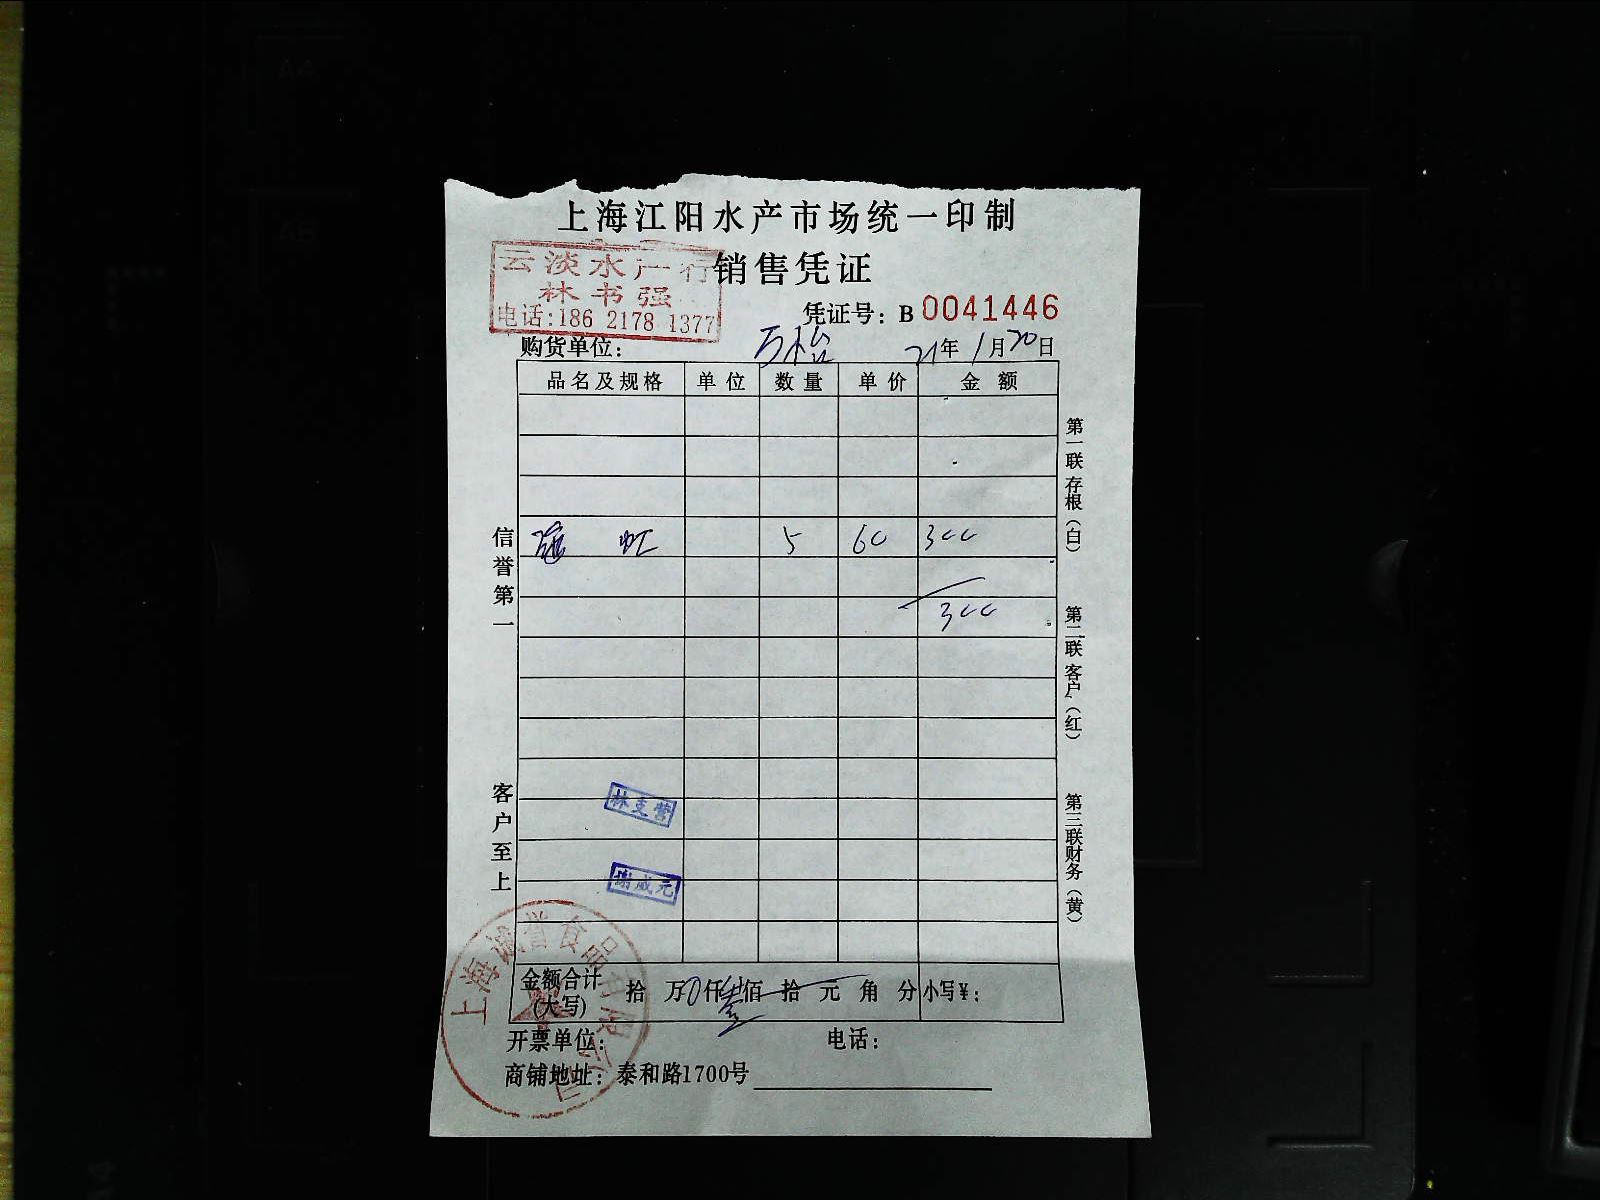 上海江阳水产市场统一印制
云淡水产行
林书强
电话:186 2178 1377
销售凭证
凭证号: B 0041446
购货单位: 万裕 21年1月20日
品名及规格 单位 数量 单价 金额
虾 5 60 300
300
信誉第一
客户至上
第一联存根(白)
第二联客户(红)
第三联财务(黄)
林支营
谢成元
金额合计(大写) 拾 万0仟叁佰 拾 元 角 分 小写¥:
开票单位: 电话:
商铺地址: 泰和路1700号
上海诚誉食品有限公司